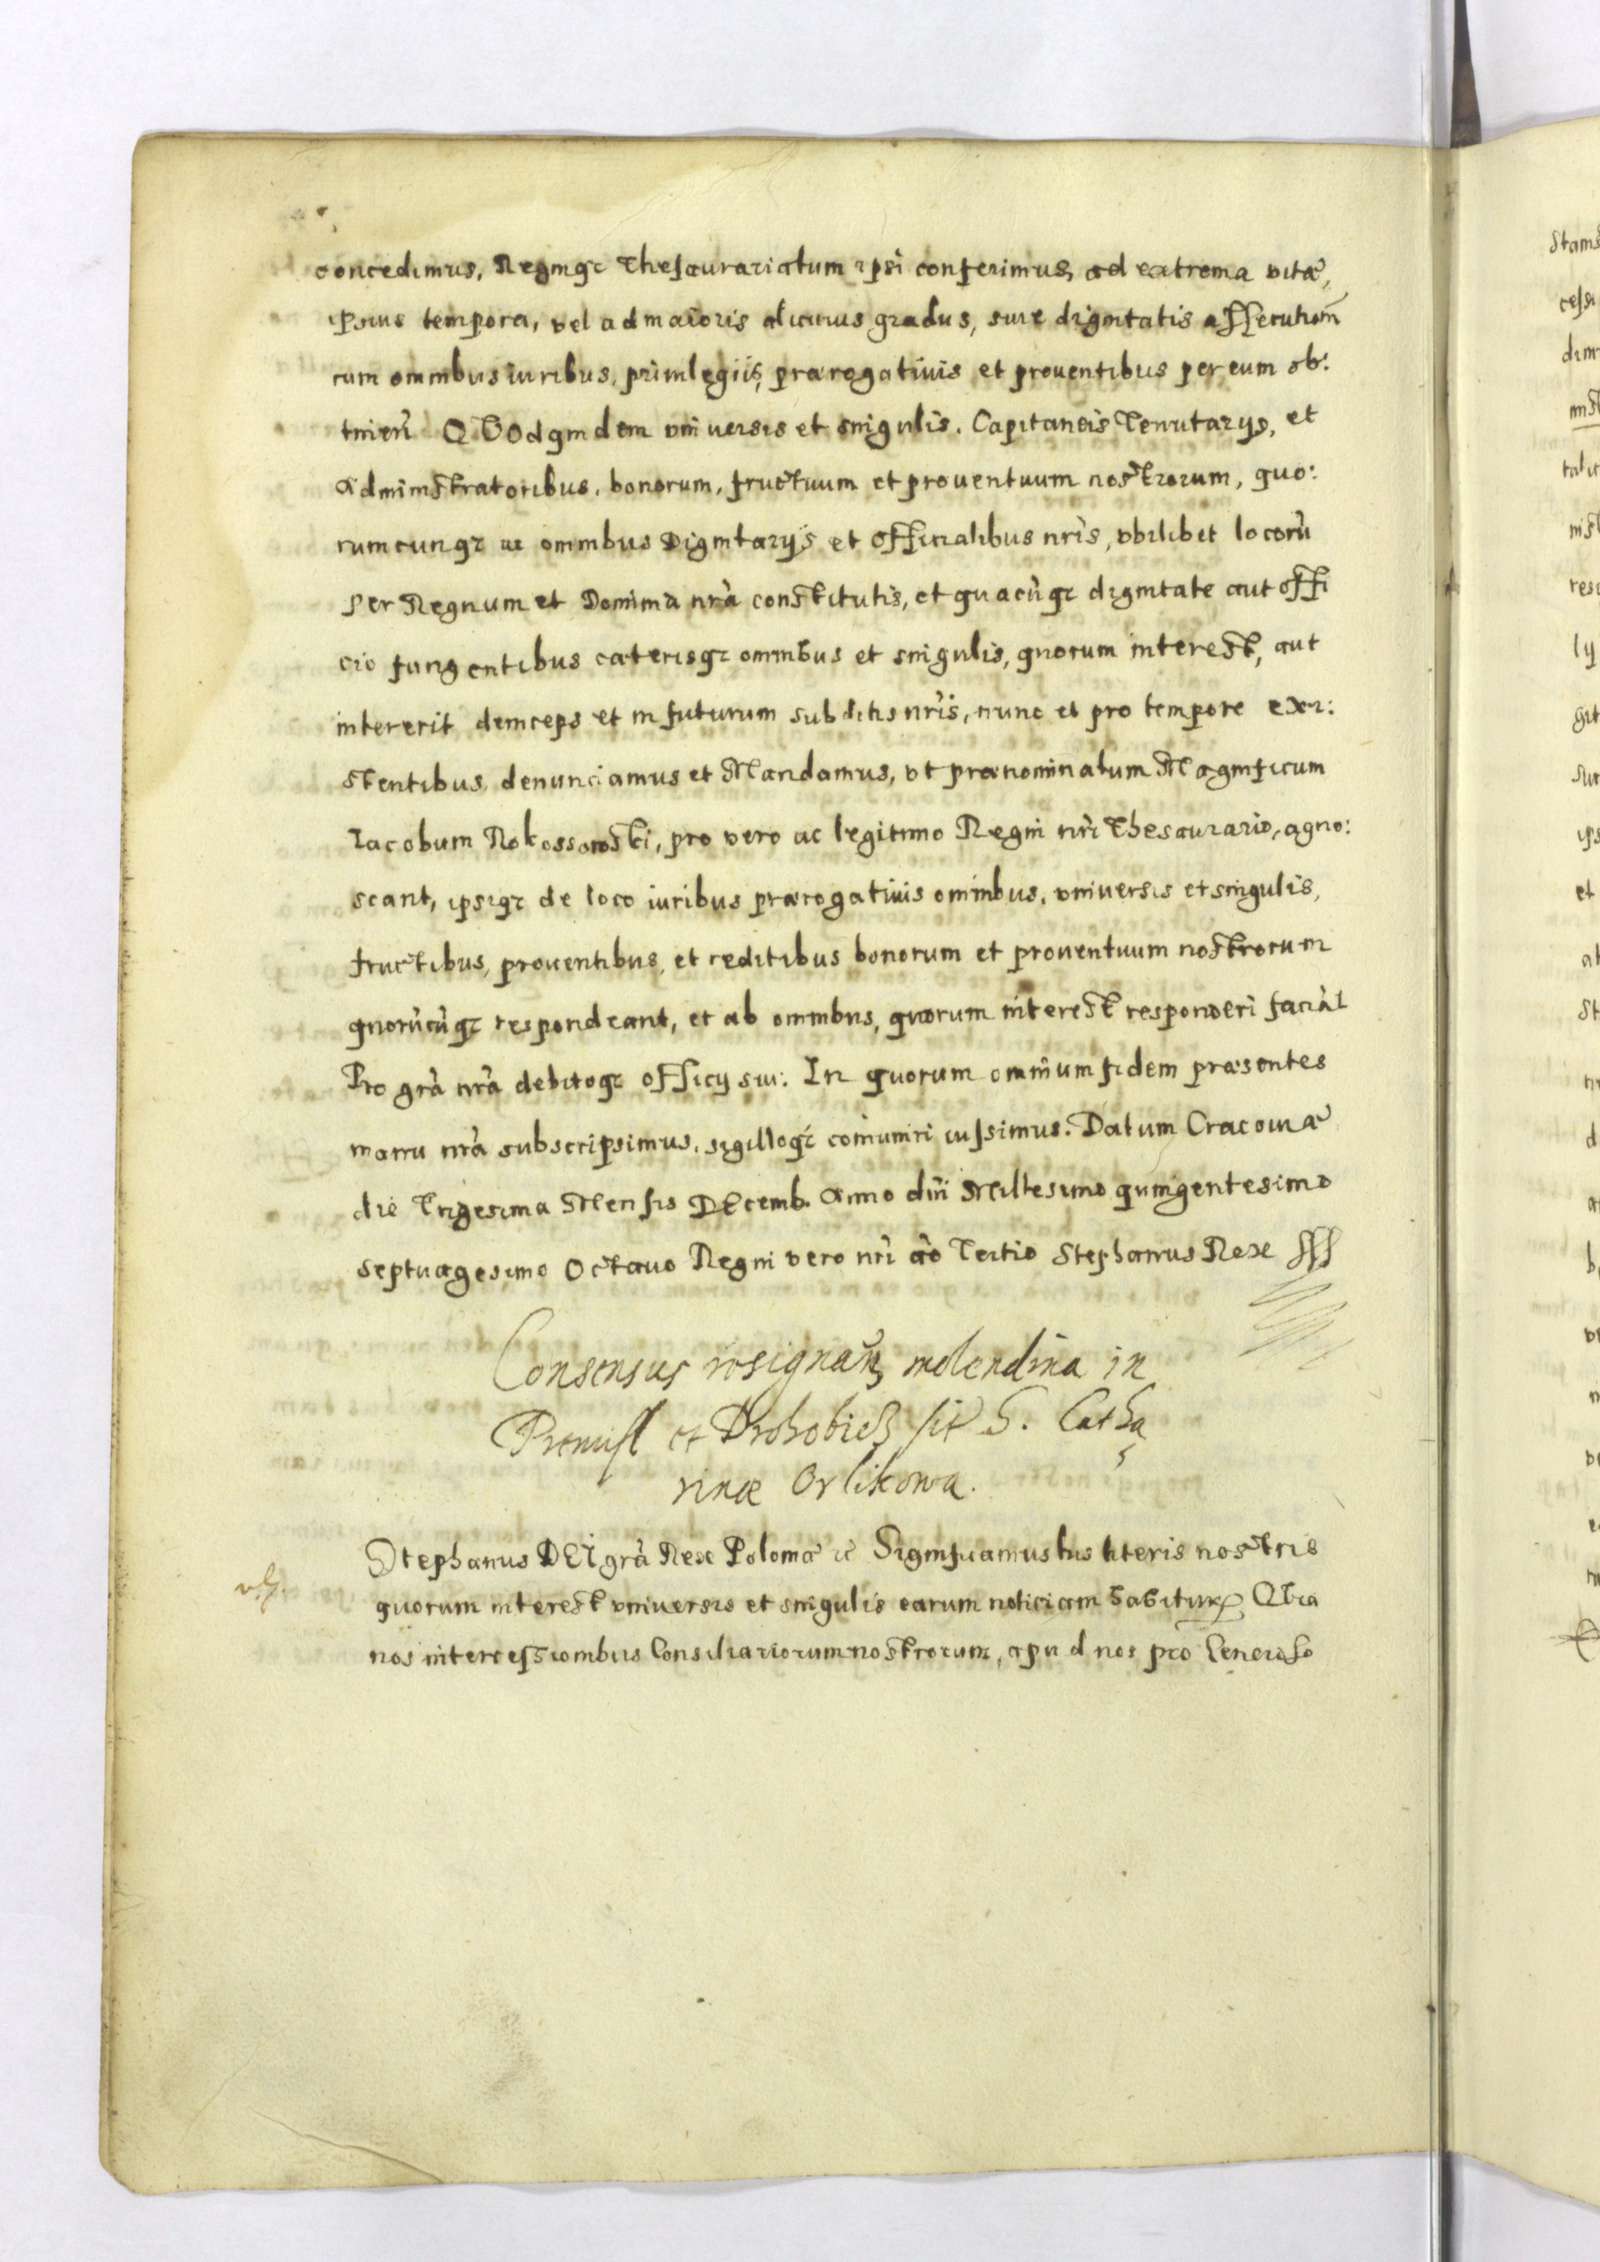 concedimus, Regniq; Thesaurariatum ipsi conferimus, ad extrema vitæ,
ipsius tempora, vel ad maioris alicuius gradus, siue dignitatis assecutionē
cum omnibus iuribus, priuilegiis, prærogatiuis et prouentibus per eum ob:
tineri QVOd quidem vniuersis et singulis. Capitaneis Tenutarijs, et
administratoribus, bonorum, fructuum et prouentuum nostrorum, quo:
rumcunq; ac omnibus Dignitarijs et Officialibus nris, vbilibet locorū
per Regnum et Dominia nrā constitutis, et quacūq; dignitate aut offi
cio fungentibus cæterisq; omnibus et singulis, quorum interest, aut
intererit deinceps et in futurum subditis nris, nunc et pro tempore exi:
stentibus, denunciamus et Mandamus, vt prænominatum Magnificum
Iacobum Rokossowski, pro vero ac legitimo Regni nri Thesaurario, agno:
scant, ipsiq; de loco iuribus prærogatiuis omnibus, vniuersis et singulis,
fructibus, prouentibus, et reditibus bonorum et prouentuum nostrorum
quorūcūq; respondeant, et ab omnibus, quorum interest responderi faciāt
Pro grā nrā debitoq; officij sui: In quorum omnium fidem præsentes
manu nrā subscripsimus, sigilloq; comuniri iussimus. Datum Cracouiæ
die Trigesima Mensis DEcemb. Anno dni Millesimo quingentesimo
septuagesimo Octauo Regni vero nri āo Tertio Stephanus Rex sss
Consensus molendina in
Premisl et Drohobicz G. Catha
rinæ Orlikowa.
Stephanus DEI grā Rex Poloniæ &c Significamus his literis nostris
quorum interest vniuersis et singulis earum noticiam habituris QVia
nos intercessionibus Consiliariorum nostrorum, apud nos pro Generoso